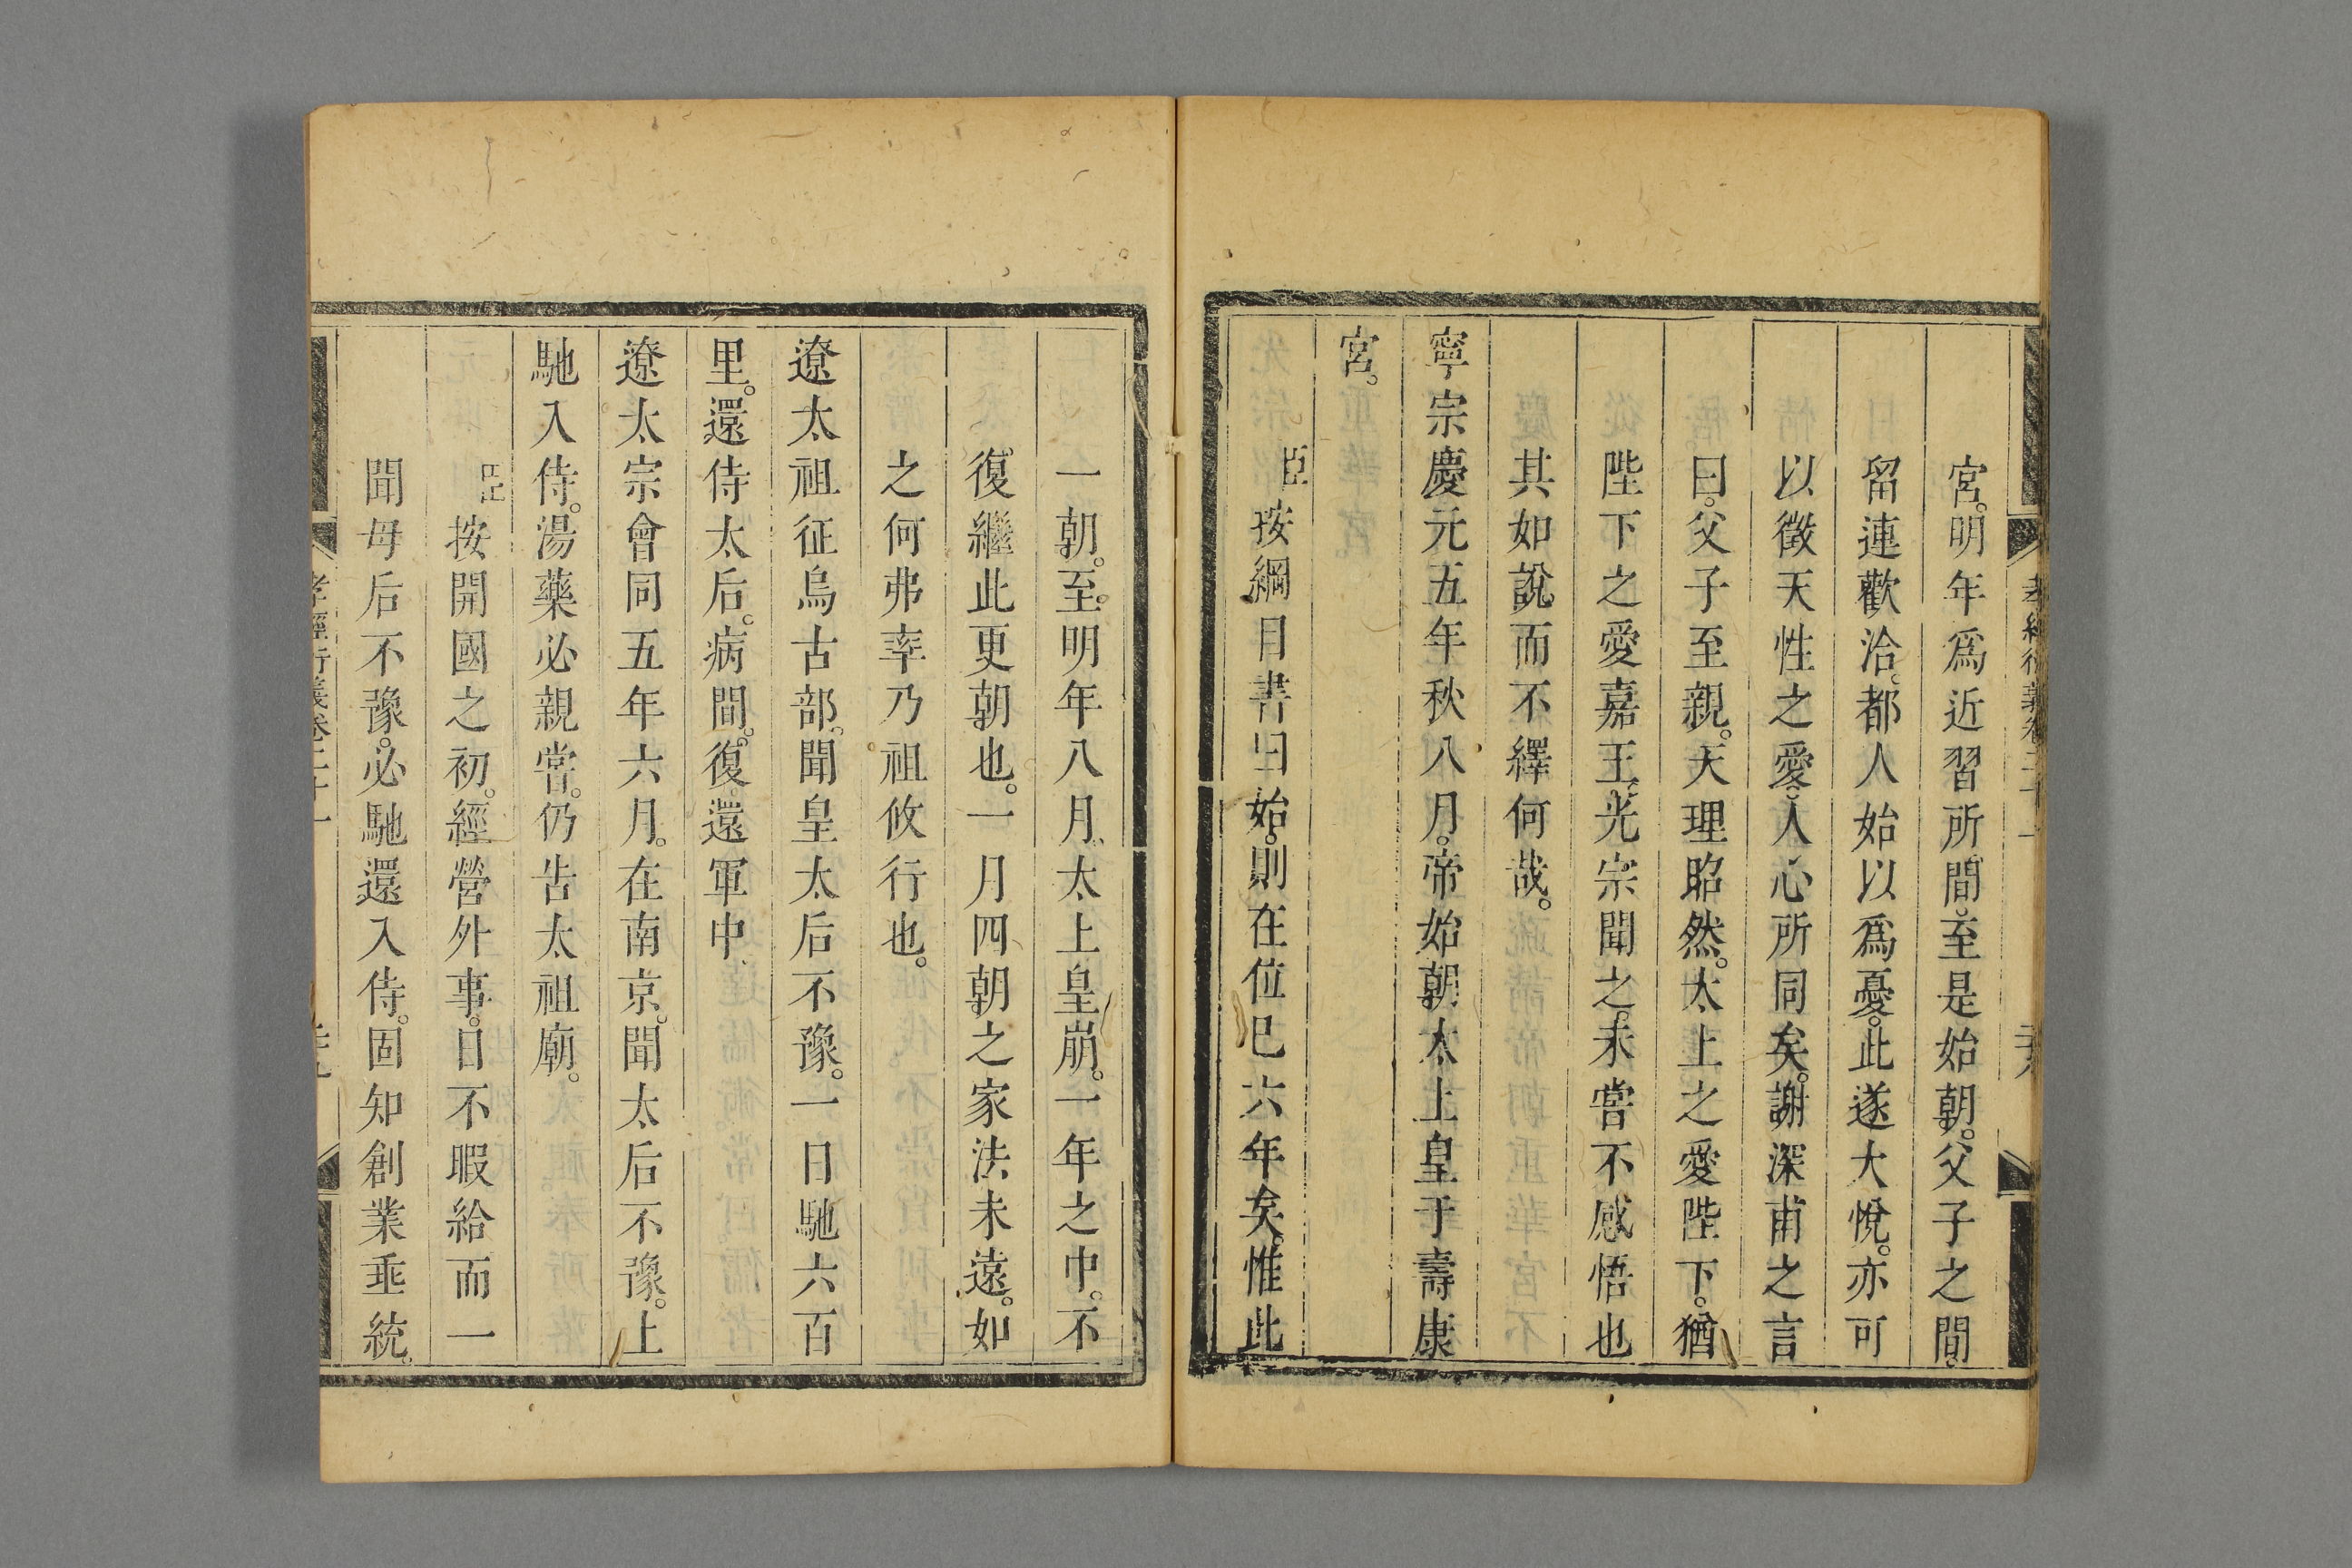 孝經衍義卷二十一
宮。明年爲近習所間。至是始朝。父子之間。
留連歡洽。都人始以爲憂。此遂大悅。亦可
以徵天性之愛。人心所同矣。謝深甫之言
曰。父子至親。天理昭然。太上之愛陛下。猶
陛下之愛嘉王。光宗聞之。未嘗不感悟也
其如說而不繹何哉。
寧宗慶元五年秋八月。帝始朝太上皇于壽康
宮。
臣按綱目書曰始。則在位巳六年矣。惟此
一朝。至。明年八月。太上皇崩。一年之中。不
復繼此更朝也。一月四朝之家法未遠。如
之何弗率乃祖攸行也。
遼太祖征烏古部。聞皇太后不豫。一日馳六百
里。還侍太后。病間。復還軍中
遼太宗會同五年六月。在南京。聞太后不豫。上
馳入侍。湯藥必親嘗。仍告太祖廟。
臣按開國之初。經營外事。日不暇給而一
聞母后不豫。必馳還入侍。固知創業垂統。
孝經衍義卷二十一